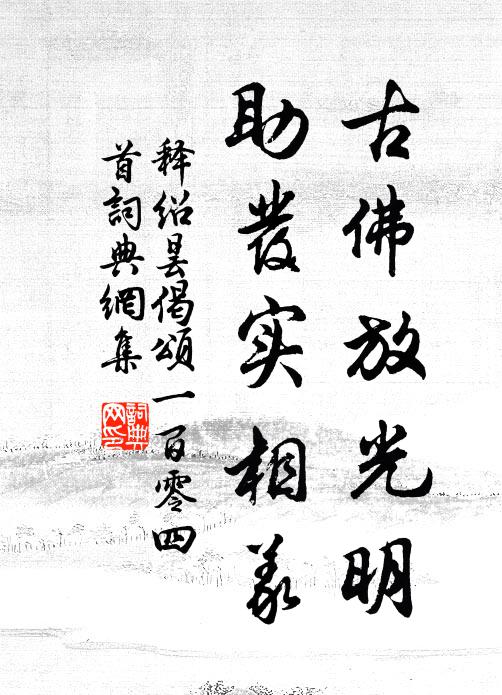 古佛放光明
助发实相义
释绍昙偈颂一百零四
首词典网集
詞典网印